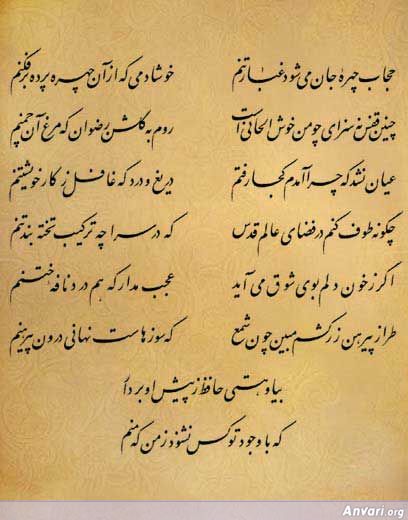 حجاب چهرهٔ جان می‌شود غبار تنم خوشا دمی که از آن چهره پرده برفکنم
چنین قفس نه سزای چو من خوش الحانی است روم به گلشن رضوان که مرغ آن چمنم
عیان نشد که چرا آمدم کجا رفتم دریغ و درد که غافل ز کار خویشتنم
چگونه طوف کنم در فضای عالم قدس که در سراچه ترکیب تخته بند تنم
اگر ز خون دلم بوی شوق می آید عجب مدار که هم درد نافه ختنم
طراز پیرهن زرکشم مبین چون شمع که سوزهاست نهانی درون پیرهنم
بیا و هستی حافظ ز پیش او بردار
که با وجود تو کس نشنود ز من که منم
Anvari.org